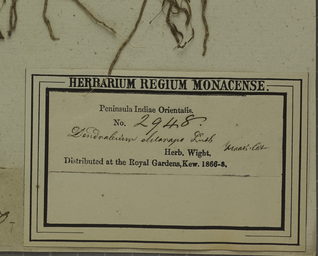 HERBARIUM REGIUM MONACENSE.
Peninsula Indiae Orientalis.
No. 2948.
Herb. Wight.
Distributed at the Royal Gardens, Kew. 1866-8.